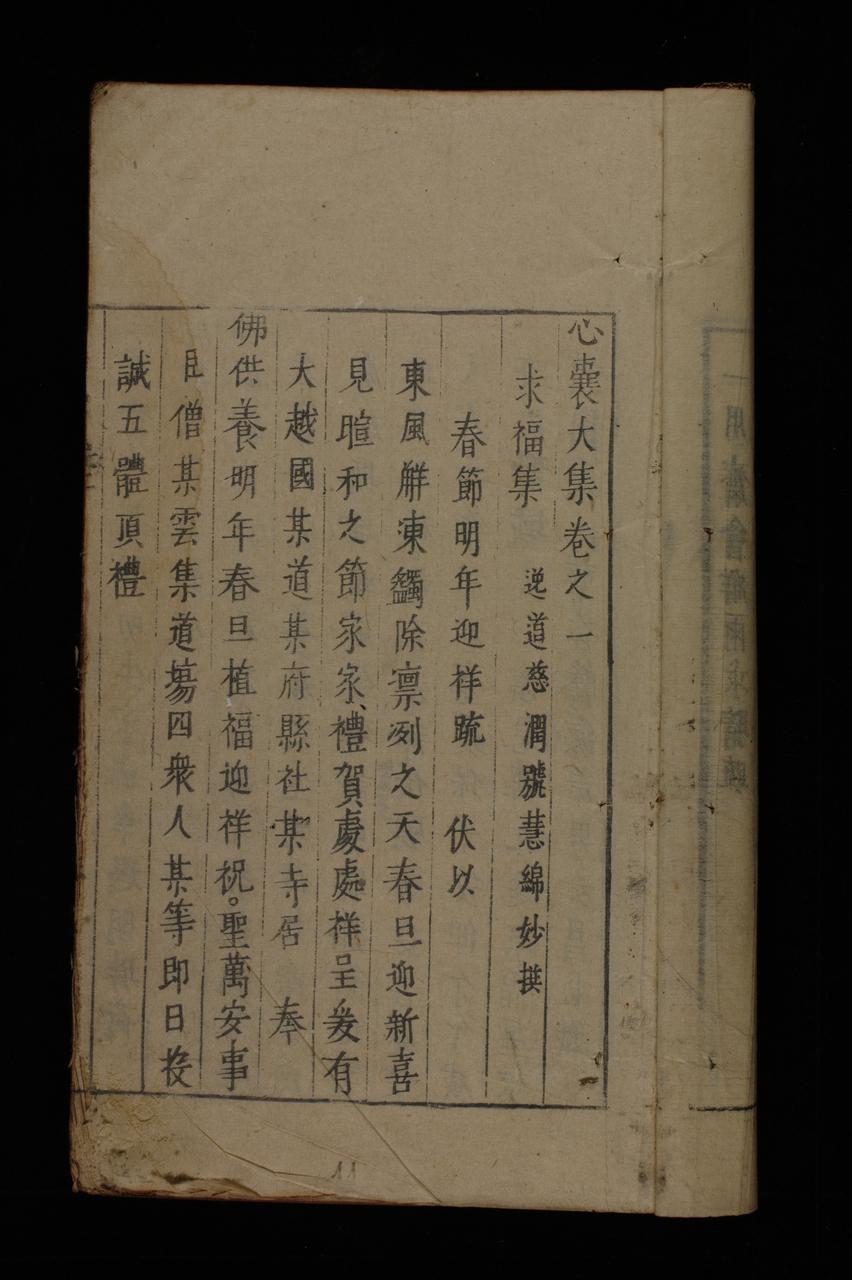 心囊大集卷之一
求福集 逆道慈潤號慧綿妙撰
春節明年迎祥疏 伏以
東風觧凍蠲除凛冽之天春旦迎新喜
見暄和之節家家禮賀處處祥呈爰有
大越國某道某府縣社某寺居 奉
佛供養明年春旦植福迎祥祝聖萬安事
臣僧某雲集道塲四衆人某等即日投
誠五體頂禮